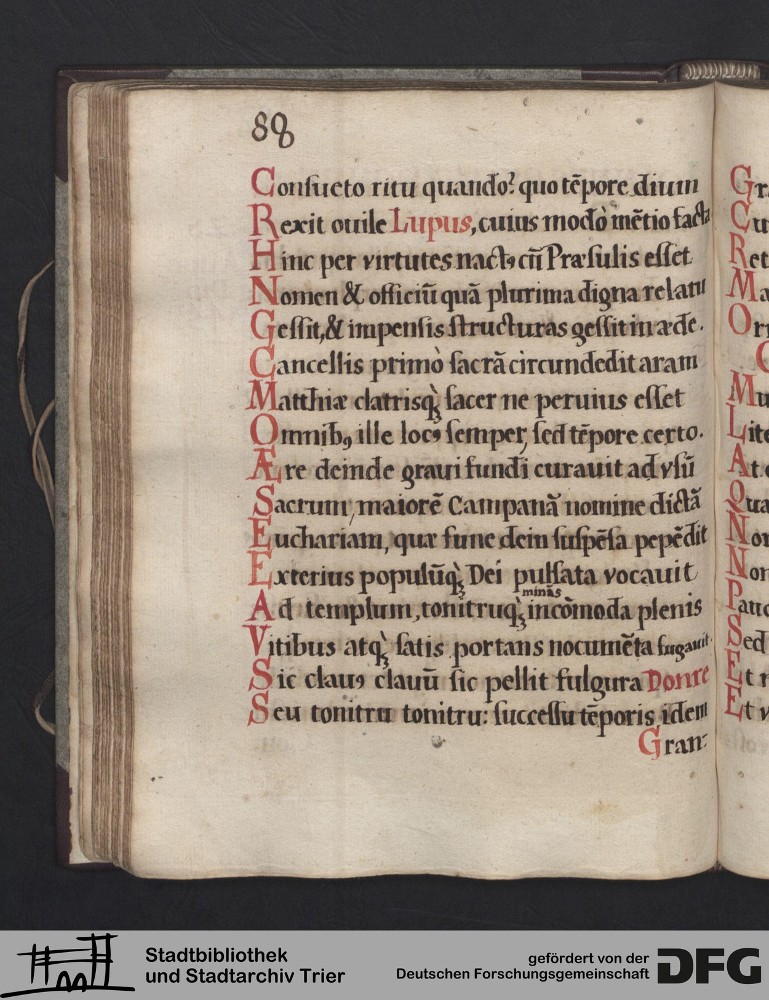 88
Conſueto ritu quando? quo tēpore dium
Rexit ouile Lupus, cuius modò mētio facta
Hinc per virtutes nactꝰ cū Præſulis eſſet
Nomen & officiū quā plurima digna relatu
Geſſit, & impenſis ſtructuras geſſit in æde.
Cancellis primò ſacrā circundedit aram
Matthiæ clatrisq; ſacer ne peruius eſſet
Omnibꝰ ille locꝰ ſemper, ſed tēpore certo.
Ære deinde graui fundi curauit ad vſū
Sacrum, maiorē Campanā nomine dictā
Euchariam, quæ fune dein ſuſpēſa pepēdit
Exterius populūq; Dei pulſata vocauit
minās
Ad templum, tonitruq; incōmoda plenis
Vitibus atq; ſatis portans nocumēta fugauit.
Sic clauꝰ clauū ſic pellit fulgura Donre
Seu tonitru tonitru: ſucceſſu tēporis idem
Gran:
Gr
Cu
Ret
Ma
Orn
C
Mu
Lite
At
Qua
Non
Non
Pauc
Sed
Et
Et v
Stadtbibliothek
und Stadtarchiv Trier
gefördert von der
Deutschen Forschungsgemeinschaft
DFG